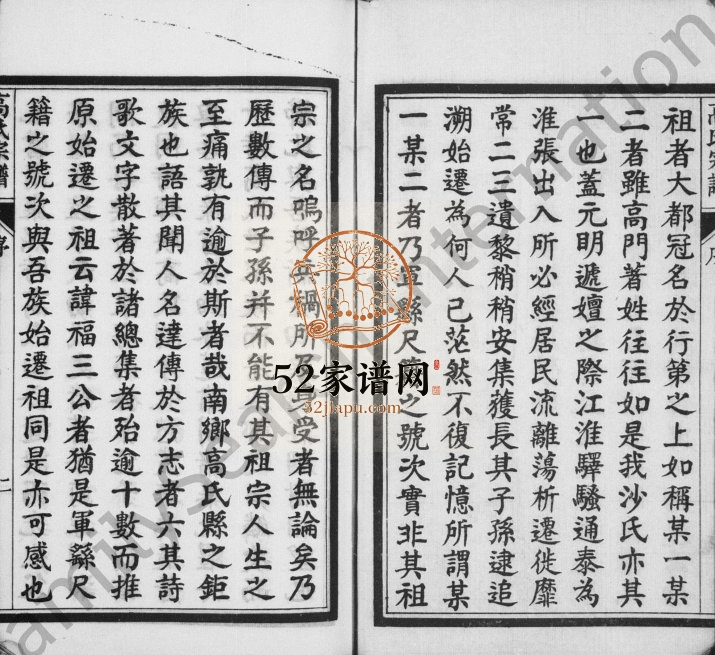 祖者大都冠名於行第之上如稱某一某
二者雖高門著姓往往如是我沙氏亦其
一也蓋元明遞嬗之際江淮驛騷通泰為
淮張出入所必經居民流離蕩析遷徙靡
常二三遺黎稍稍安集獲長其子孫逮追
溯始遷為何人已茫然不復記憶所謂某
一某二者乃軍繇尺籍之號次實非其祖
宗之名嗚呼兵禍所及其受者無論矣乃
歷數傳而子孫并不能有其祖宗人生之
至痛孰有逾於斯者哉南鄉高氏縣之鉅
族也語其聞人名達傳於方志者六其詩
歌文字散著於諸總集者殆逾十數而推
原始遷之祖云諱福三公者猶是軍繇尺
籍之號次與吾族始遷祖同是亦可感也
高氏宗譜
序
二
52家谱网
52jiapu.com